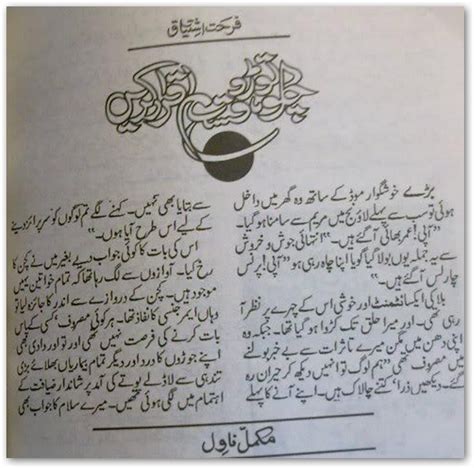 فرحت اشتیاق
چلو توڑو قسم اقرار کریں
بڑے خوشگوار موڈ کے ساتھ وہ گھر میں داخل
ہوئی تو سب سے پہلے لاؤنج میں مریم سے سامنا ہو گیا۔
"آپی! عمر بھائی آ گئے ہیں۔" انتہائی جوش و خروش
سے یہ جملہ یوں بولا گیا گویا کہنا چاہ رہی ہو "آپی! پرنس
چارلس آ گئے ہیں۔"
بلا کی ایکسائٹمنٹ اور خوشی اس کے چہرے پر نظر آ
رہی تھی۔ اور میرا حلق تک کڑوا ہو گیا۔ جبکہ وہ
اپنی دھن میں مگن میرے تاثرات سے بے خبر بولنے
میں مصروف تھی "ہم لوگ تو انہیں دیکھ کر حیران رہ
گئے۔ دیکھیں ذرا' کتنے چالاک ہیں۔ اپنے آنے کا پہلے
سے بتایا بھی نہیں۔ کہنے لگے تم لوگوں کو سرپرائز دینے
کے لیے اس طرح آیا ہوں۔"
اس کی بات کا کوئی جواب دیے بغیر میں نے کچن کا
رخ کیا۔ آوازوں سے لگ رہا تھا کہ تمام خواتین یہیں
موجود ہیں۔ کچن کے دروازے سے اندر کا جائزہ لیا تو
وہاں ایمرجنسی کا نفاذ تھا۔ ہر کوئی مصروف' کسی کے پاس
بات کرنے کی فرصت نہیں تھی اور تو اور دادی بھی
اپنے جوڑوں کا درد اور دیگر تمام بیماریاں بھلائے بڑی
تندہی سے لاڈلے پوتے کی آمد پر شاندار ضیافت کے
اہتمام میں لگی ہوئی تھیں۔ میرے سلام کا جواب بھی
مکمل ناول